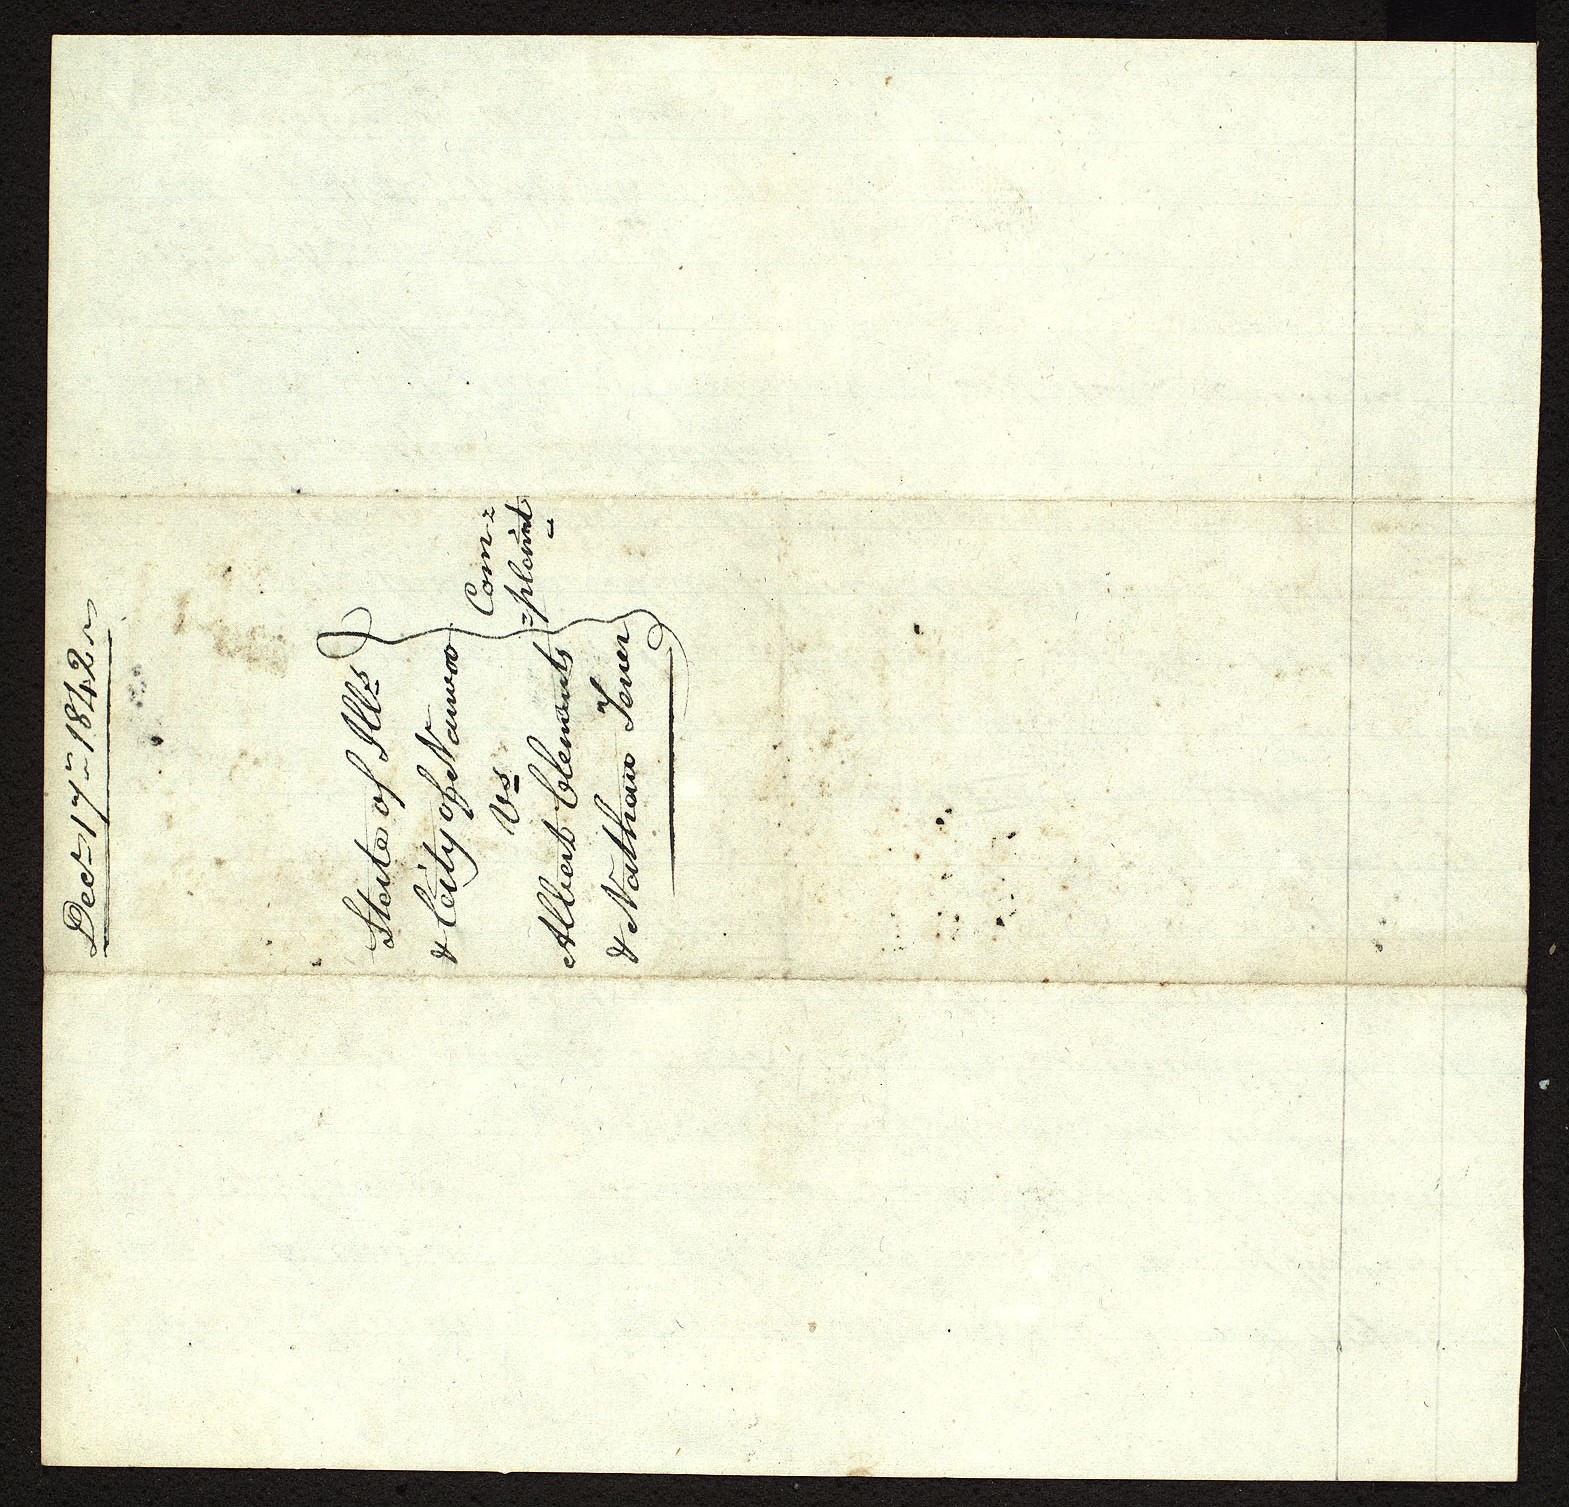 Dec.r 17th 1842
State of Ills
& City of Nauvoo
Vs
Com=
=plaint
Albert Clements
& Nathan Tener